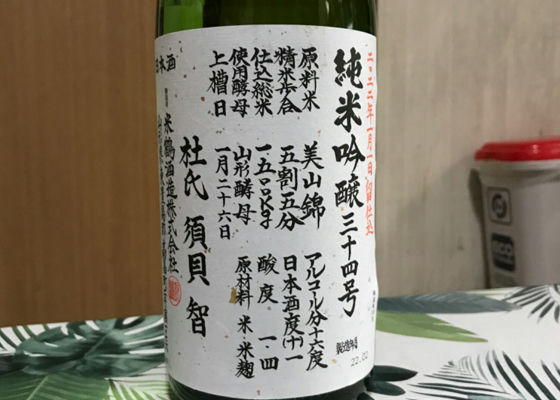 二〇二二年一月一日留仕込
純米吟醸三十四号
原料米 美山錦 アルコール分十六度
精米歩合 五割五分 日本酒度(十)一
仕込総米 一五〇〇kg 酸度 一・四
使用酵母 山形酵母 原材料 米 米麹
上槽日 一月二十六日
杜氏 須貝 智
米鶴酒造株式会社
日本酒
製造年月
22.02